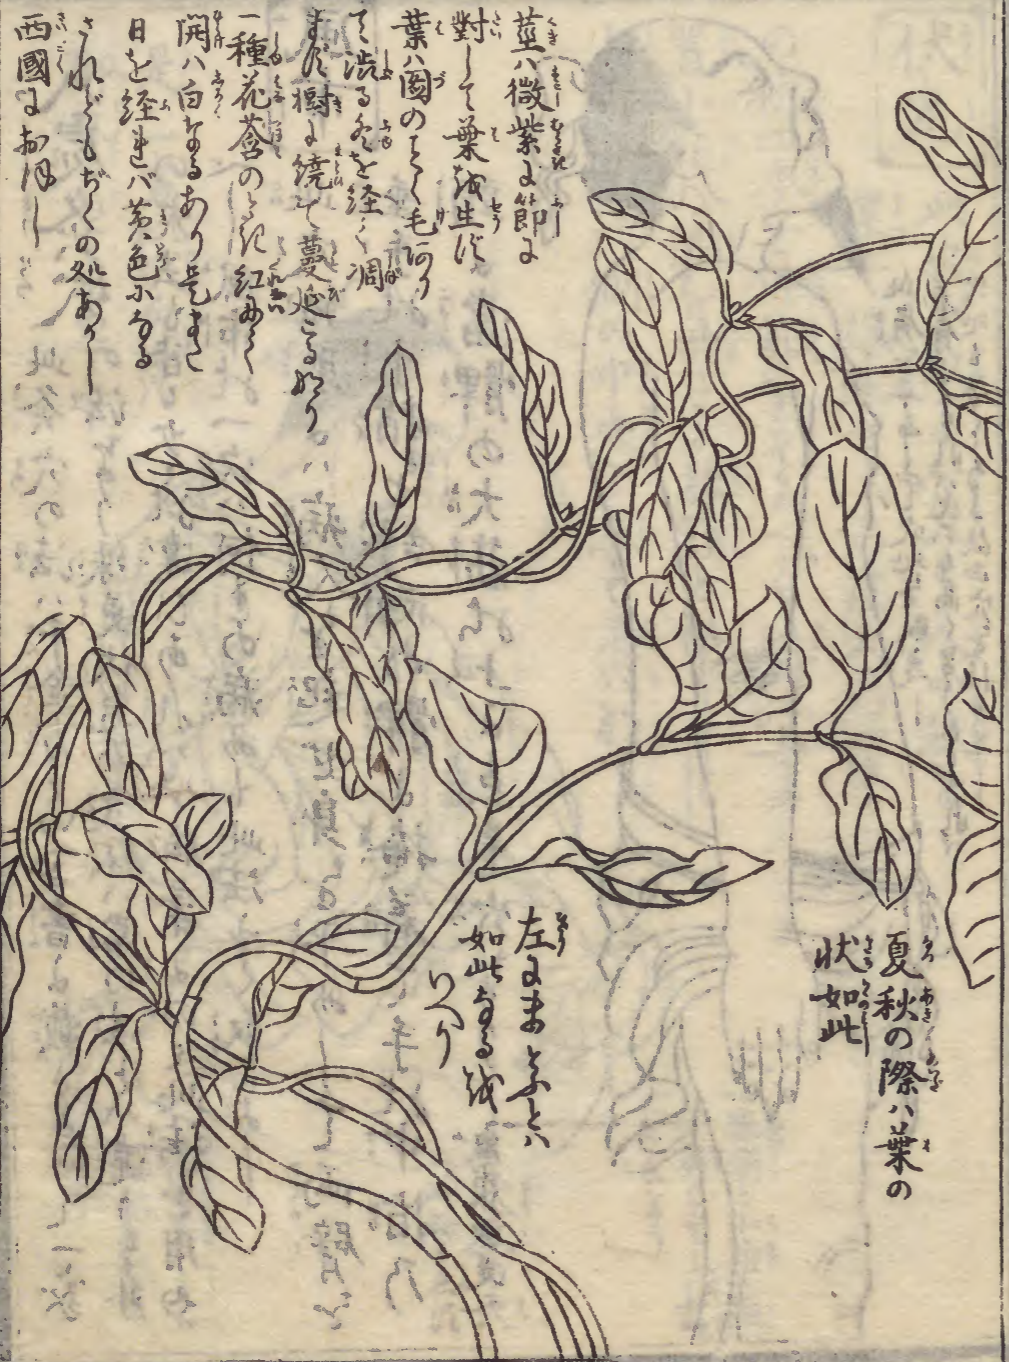 莖ハ微紫に節に
對して葉を生ず
葉ハ圖のごとく毛あり
て渋る冬を経て凋
まず樹に繞て蔓延こる物なり
一種花蕾のとき紅にして
開ハ白なるあり是また
日を経れバ黄色になる
されどもぢくの処あかし
西國におほし
夏秋の際ハ葉の
状如此
左にまとふとハ
如此なるを
いへり